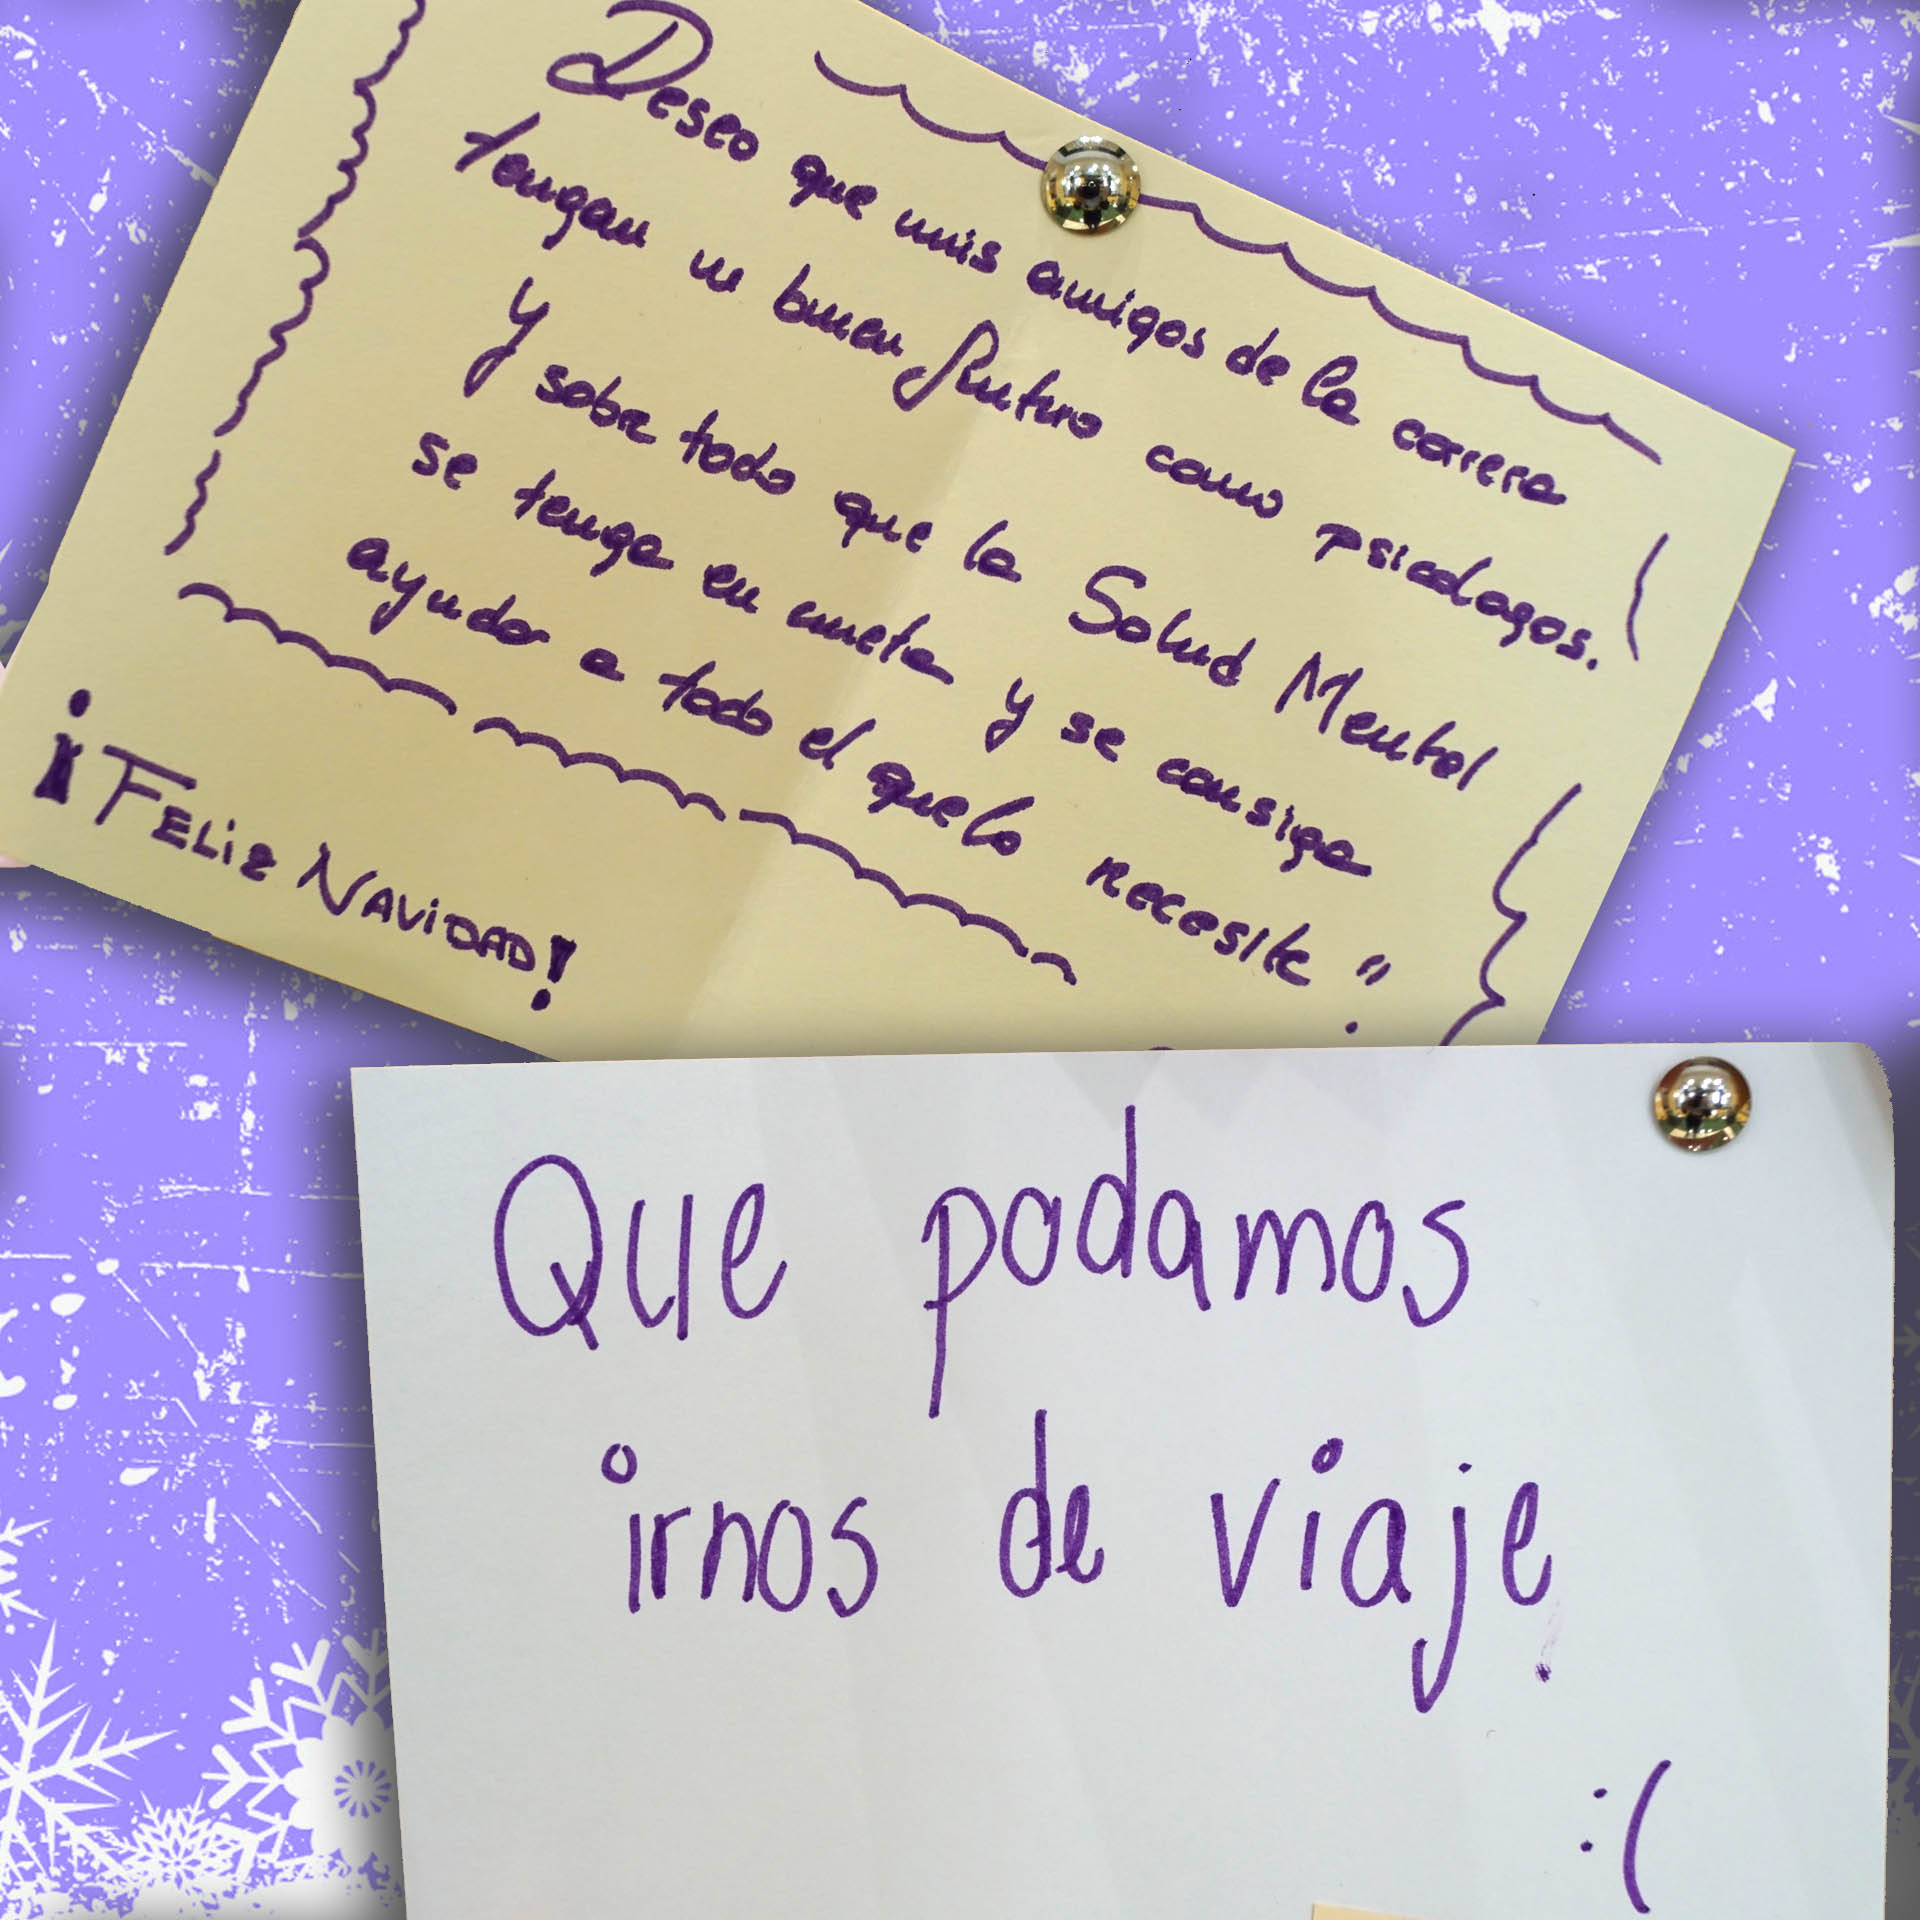 Deseo que mis amigos de la carrera
tengan un buen futuro como psicologos.
Y sobre todo que la Salud Mental
se tenga en cuenta y se consiga
ayudar a todo el que lo necesite"
¡FELIZ NAVIDAD!
Que podamos
irnos de viaje
:(